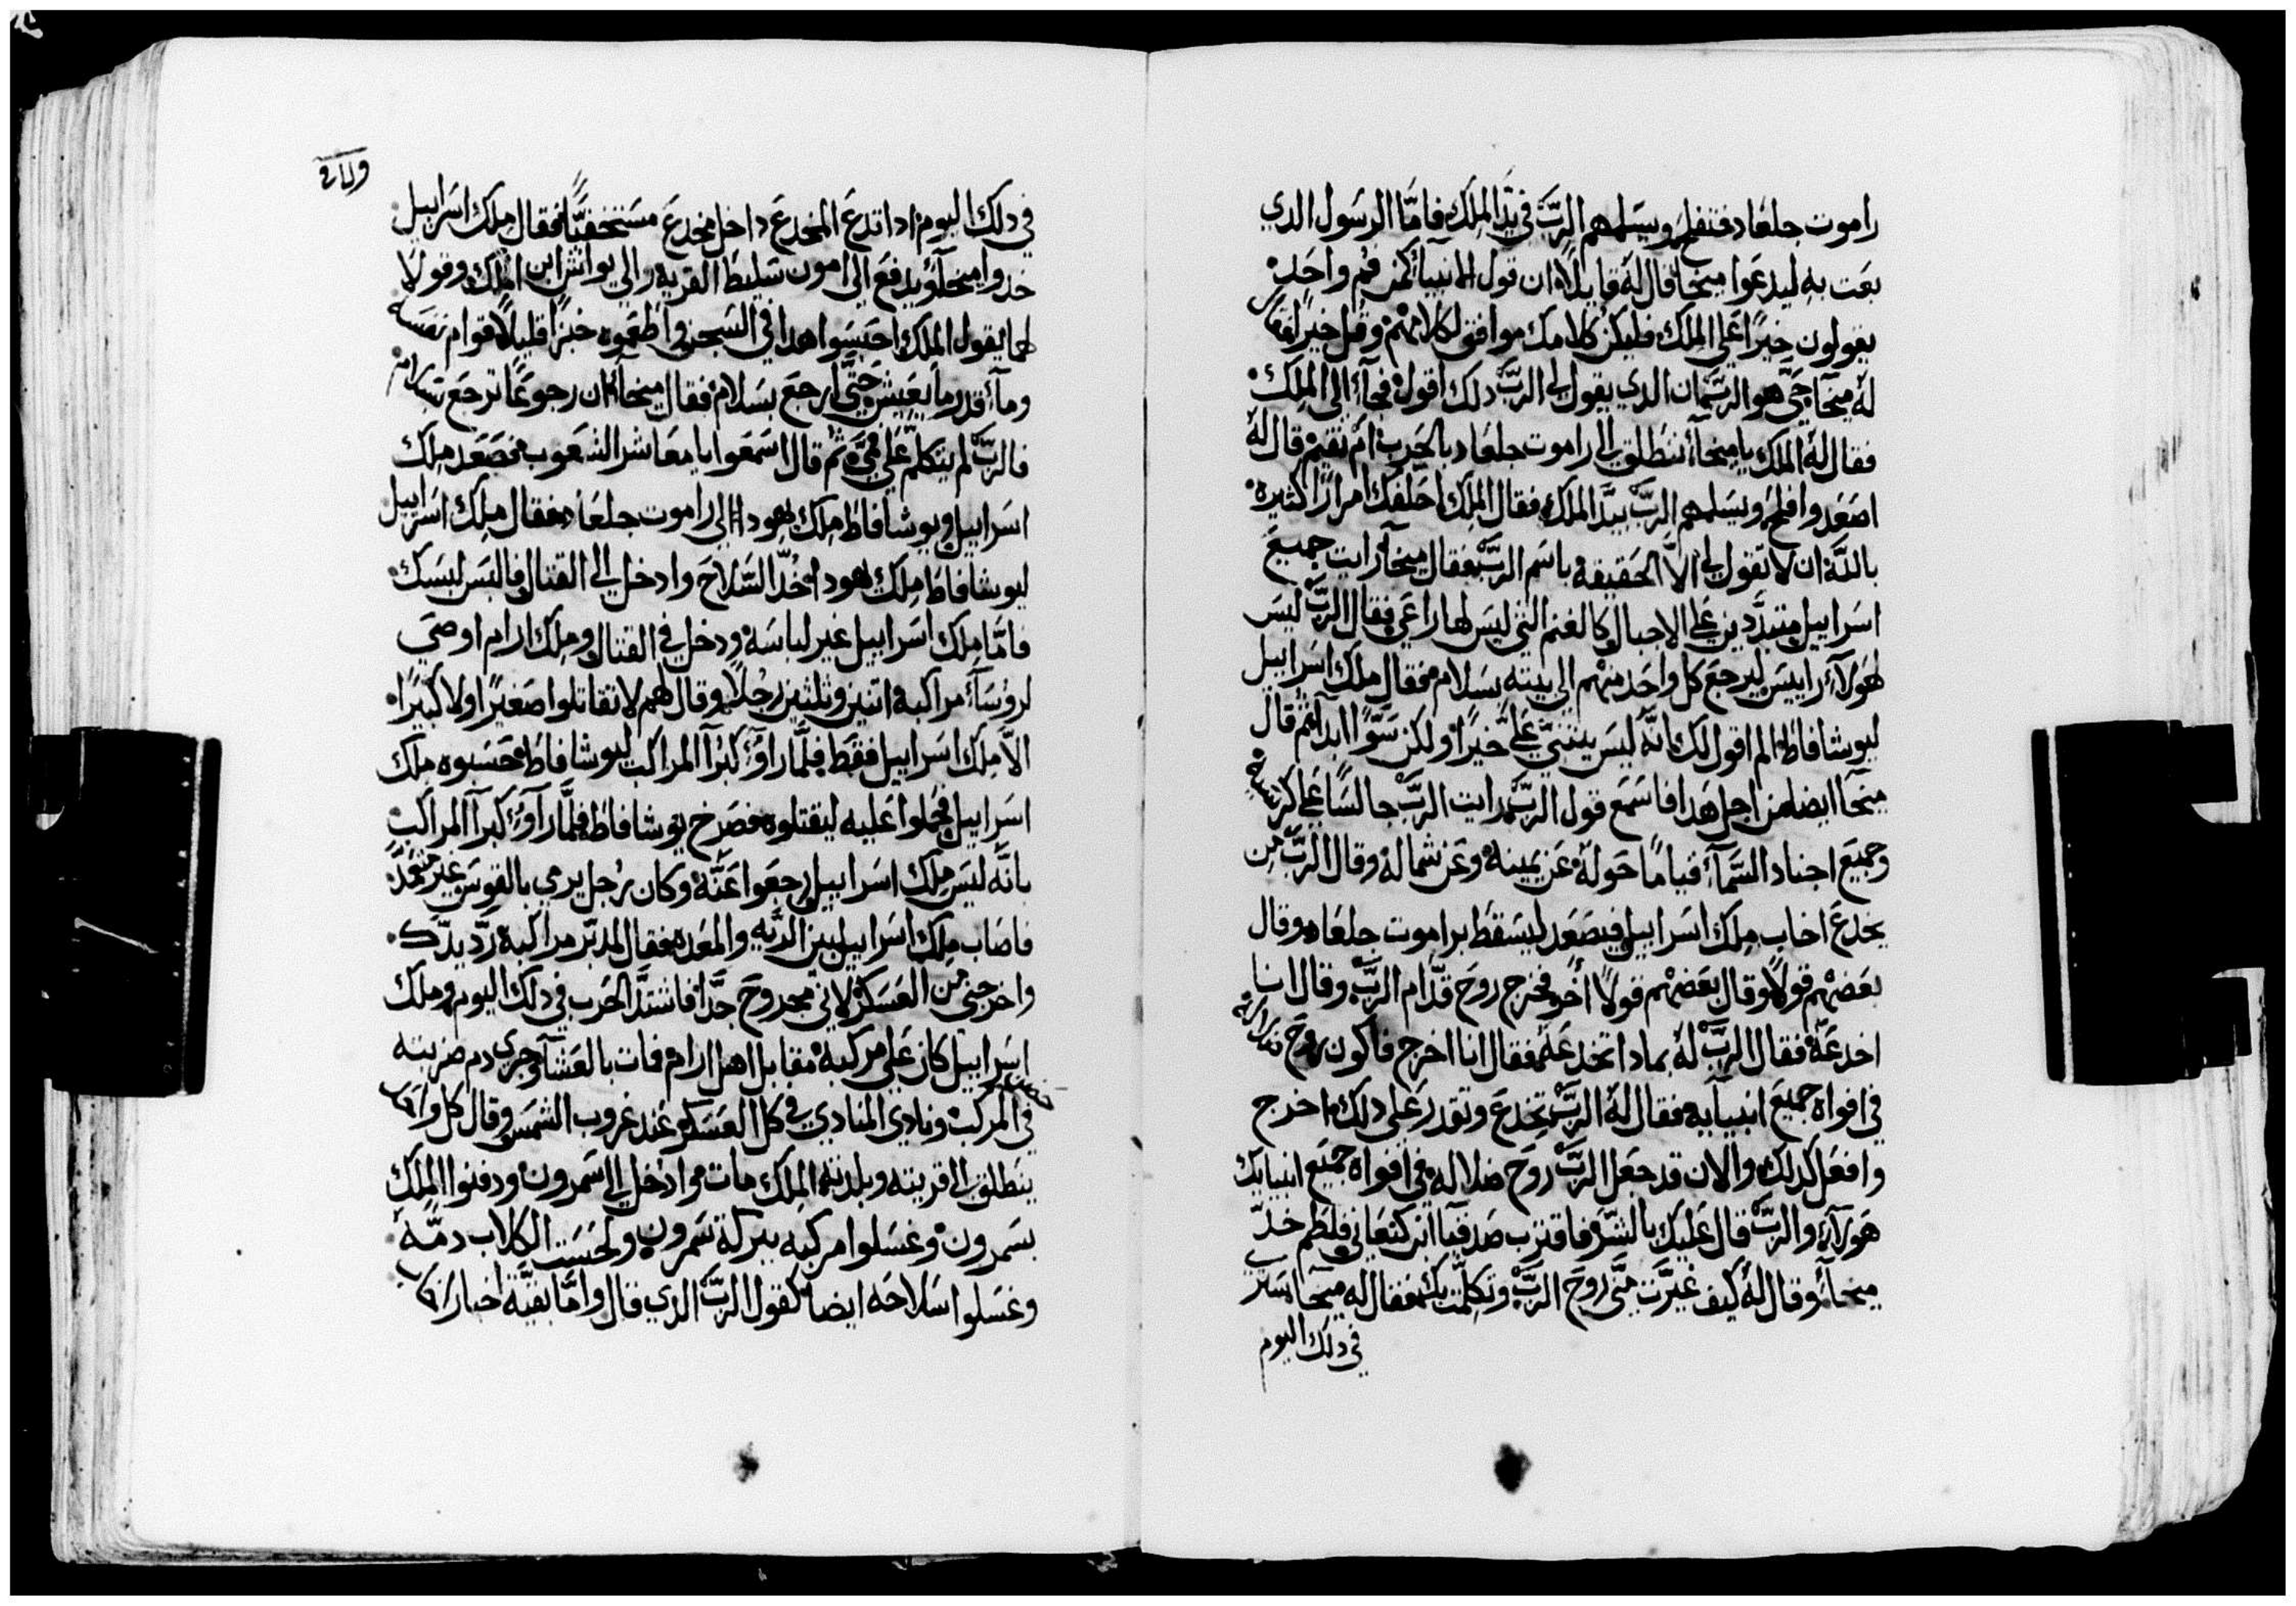 راموت جلعاد فتفلح ويسلمهم الربّ في يدّ الملك فامّا الرسول الدي
بعت به ليدعوا ميخا قال له قايلاً ان قول الانبيآ كمن فم واحد
يقولون خيرًا على الملك فليكن كلامك موافق لكلامهم وقل خيرًا فقال
له ميخآ حيّ هو الربّ ان الدي يقول لي الربّ دلك اقول فجآ الى الملك
فقال له الملك يا ميخآ ننطلق الى راموت جلعاد بالحرب ام نقيم قال له
اصعد وافلح ويسلمهم الربّ بيدّ الملك فقال الملك احلفك امرارًا كثيره
باللّه ان لا تقول لي الاّ الحقيقة باسم الربّ فقال ميخآ رايت جميع
اسراييل متبدّدين على الاجبال كالغنم التي ليس لها راعي فقال الربّ ليس
لهولآء راييس ليرجع كل واحد منهم الى بيته بسلام فقال ملك اسراييل
ليوشافاط الم اقول لك انّه ليس يتنبيّ عليّ خيرًا ولكن سوًّا ابدا ثم قال
ميخآ ايضا من اجل هدا فاسمع قول الربّ رايت الربّ جالسًا على كرسيه
وجميع اجناد السّمآء قيامًا حوله عن يمينه وعن شماله وقال الربّ من
يخدع اخاب ملك اسراييل فيصعد ليسقط براموت جلعاد وقال
بعضهم قولاً وقال بعضهم قولاً اخر فخرج روح قدّام الربّ وقال انا
اخدعه فقال الربّ له بمادا تخدعه فقال انا اخرج فاكون روح كدابه
في افواه جميع انبيآيه فقال له الربّ تخدع وتقدر على دلك اخرج
وافعل كدلك والان قد جعل الربّ روح ضلاله في افواه جميع انبيايك
هولآء والربّ قال عليك بالشرّ فاقترب صدقيا ابن كنعاني فلطم خدّ
ميخآء وقال له كيف غيّرت منّي روح الربّ وتكلّمت بك فقال له ميخآ سترى
في دلك اليوم
في دلك اليوم ادا تدع المخدع داخل مخدع مستخفيًّا فقال ملك اسراييل
خدوا ميخآ ويدفع الى امون سليط القرية والى يواش ابن الملك وقولا
لهما يقول الملك احبسوا هدا في السجن واطعموه خبزًا قليلاً قوام نفسه
ومآء قدر ما يعيش حتّى ارجع بسلام فقال ميخآ ان رجوعًا ترجع بسلام
فالربّ لم يتكلّم على فميّ ثم قال اسمعوا يا معاشر الشعوب فصعد ملك
اسراييل ويوشافاط ملك يهودا الى راموت جلعاد فقال ملك اسراييل
ليوشافاط ملك يهودا خدّ السّلاح وادخل الى القتال فالبس لبسك
فامّا ملك اسراييل غير لباسه ودخل في القتال وملك ارام اوصى
لروسآء مراكبه اتنين وتلتين رجلاً وقال لهم لا تقاتلوا صغيرًا ولا كبيرًا
الاّ ملك اسراييل فقط فلمّا راوا كبرآ المراكب ليوشافاط فحسبوه ملك
اسراييل فحملوا عليه ليقتلوه فصرخ يوشافاط فلمّا راوا كبرآ المراكب
بانّه ليس ملك اسراييل رجعوا عنّه وكان رجل يرمي بالقوس غير متعمّد
فاصاب ملك اسراييل بين الريّه والمعده فقال لمدبّر مراكبه ردّ يدّك
واخرجني من العسكر لاني مجروح جدًّا فاشتدّ الحرب في دلك اليوم وملك
اسراييل كان على مركبة مقابل اهل ارام فمات بالعشآ وجرى دم ضربته
في المركب ونادى المنادي في كل العسكر عند غروب الشمس وقال كل واحد
ينطلق الى قريته وبلدته الملك مات وادخل الى سمرون ودفنوا الملك
بسمرون وغسلوا مركبه ببركة سمرون ولحست الكلاب دمّه
وغسلوا سلاحه ايضا كقول الربّ الدي قال وامّا بقيّة اخبار اخاب